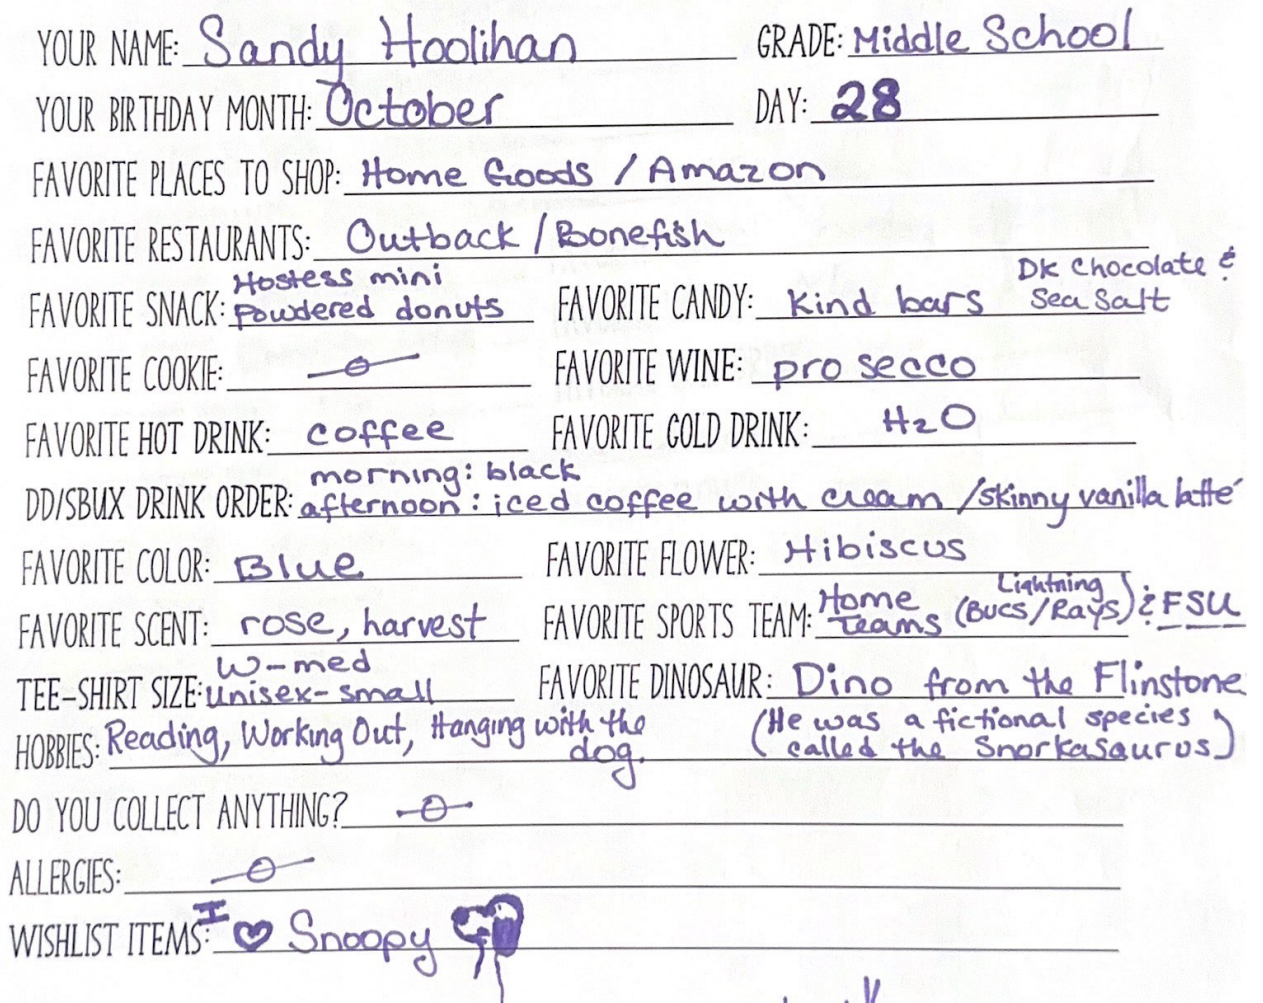 YOUR NAME: Sandy Hoolihan GRADE: Middle School
YOUR BIRTHDAY MONTH: October DAY: 28
FAVORITE PLACES TO SHOP: Home Goods / Amazon
FAVORITE RESTAURANTS: Outback / Bonefish
FAVORITE SNACK: Hostess mini powdered donuts FAVORITE CANDY: Kind bars Dk Chocolate & Sea Salt
FAVORITE COOKIE: FAVORITE WINE: pro secco
FAVORITE HOT DRINK: coffee FAVORITE COLD DRINK: H₂O
morning: black
DD/SBUX DRINK ORDER: afternoon: iced coffee with cream /skinny vanilla latté
FAVORITE COLOR: Blue FAVORITE FLOWER: Hibiscus
FAVORITE SCENT: rose, harvest FAVORITE SPORTS TEAM: Home teams (Bucs/Rays/Lightning) & FSU
TEE-SHIRT SIZE: W-med unisex-small FAVORITE DINOSAUR: Dino from the Flinstone
HOBBIES: Reading, Working Out, Hanging with the dog. (He was a fictional species called the Snorkasaurus)
DO YOU COLLECT ANYTHING?
ALLERGIES:
WISHLIST ITEMS: I ♥ Snoopy